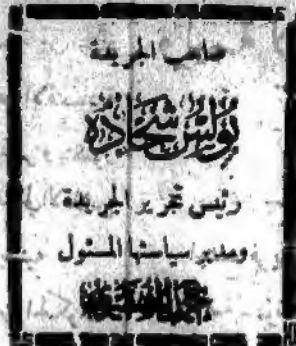 صاحب الجريدة
بولس شحاده
رئيس تحرير الجريدة
ومدير سياستها المسئول